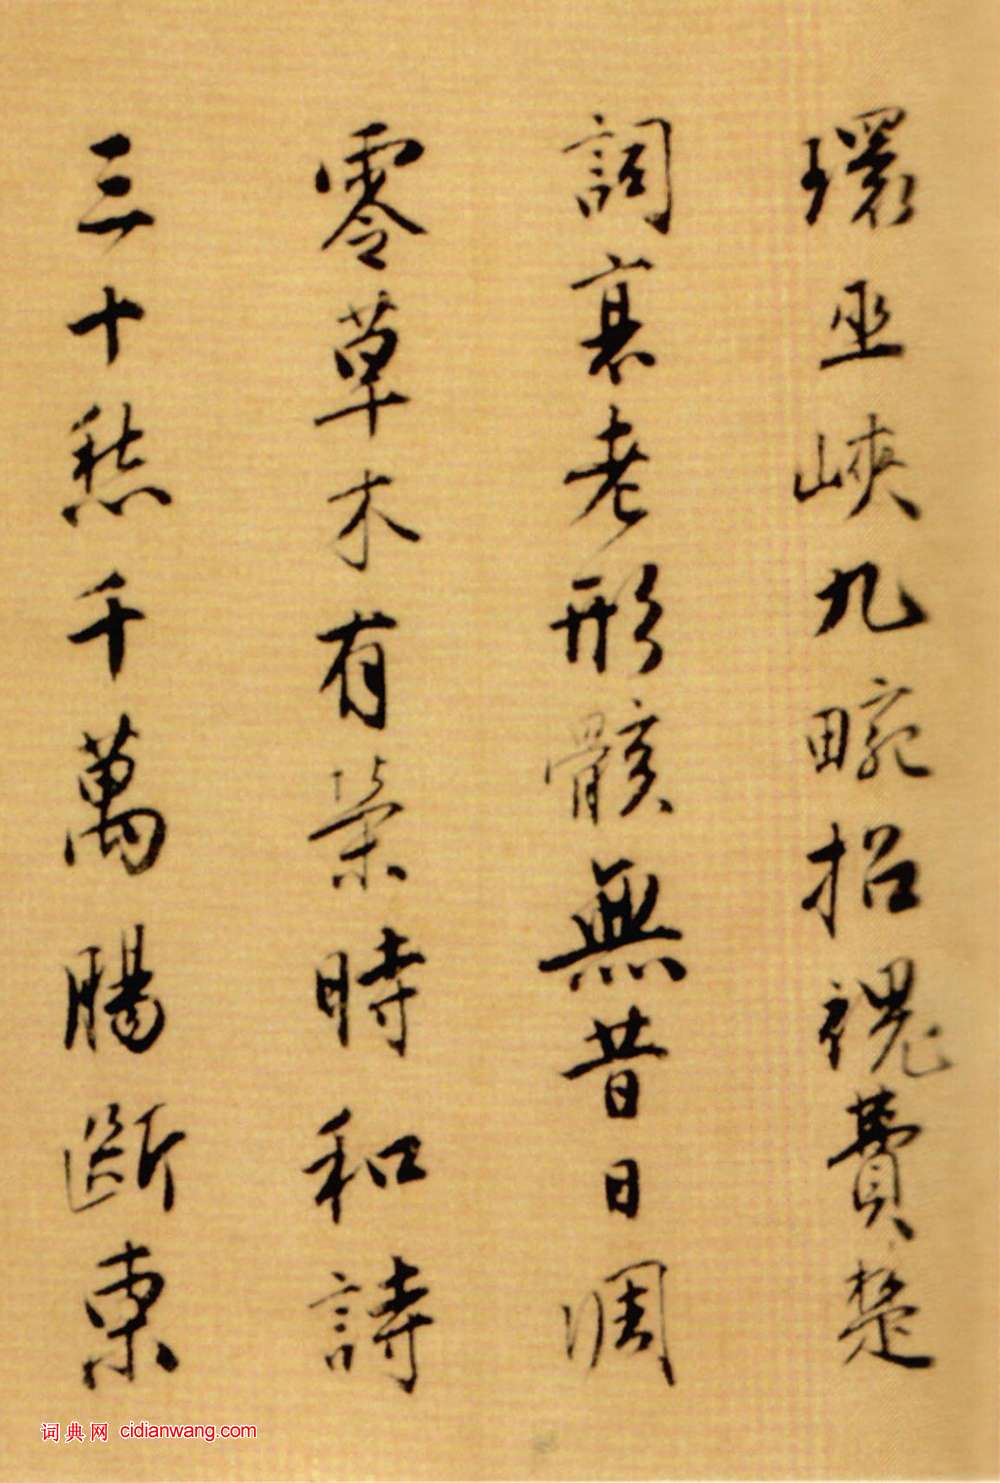 環巫峽九畹招魂費楚
詞衰老形骸無昔日凋
零草木有榮時和詩
三十愁千萬腸斷東
词典网 cidianwang.com